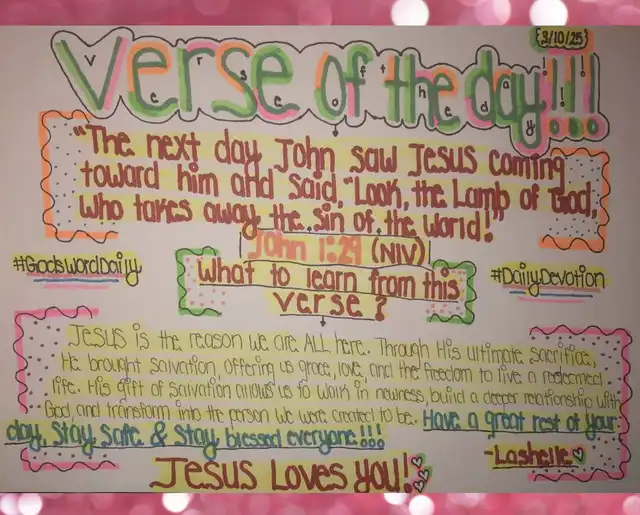 {3/10/25}
Verse of the day!!!
"The next day John saw Jesus coming
toward him and said, "Look, the Lamb of God,
who takes away the sin of the world!"
John 1:29 (NIV)
#GodsWordDaily
What to learn from this
verse?
#DailyDevotion
Jesus is the reason we are ALL here. Through His ultimate sacrifice,
He brought salvation, offering us grace, love, and the freedom to live a redeemed
life. His gift of salvation allows us to walk in newness, build a deeper relationship with
God, and transform into the person we were created to be. Have a great rest of your
day, Stay Safe & Stay blessed everyone!!!
-Lashelle
Jesus Loves You!